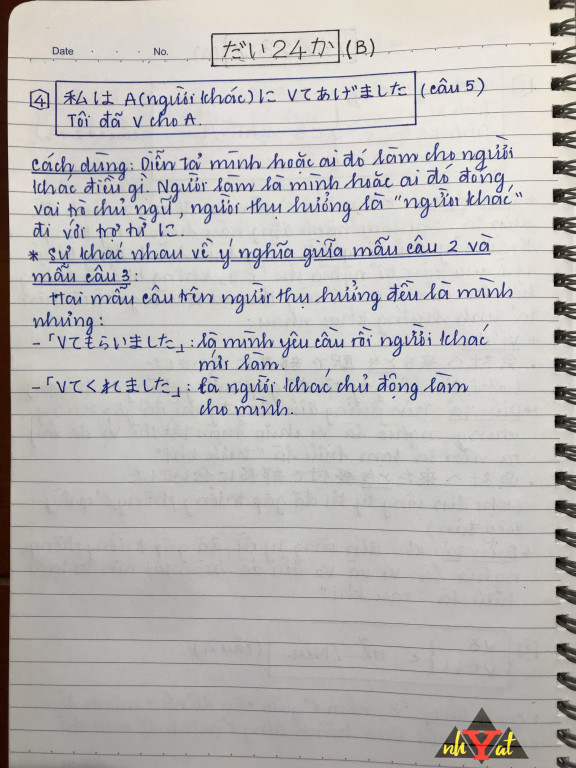 Date . . . No.
だい24か (B)
4 私は A(người khác)に Vてあげました (câu 5)
Tôi đã V cho A.
Cách dùng: Diễn tả mình hoặc ai đó làm cho người
khác điều gì. Người làm là mình hoặc ai đó đóng
vai trò chủ ngữ, người thụ hưởng là "người khác"
đi với trợ từ に.
* Sự khác nhau về ý nghĩa giữa mẫu câu 2 và
mẫu câu 3:
Hai mẫu câu trên người thụ hưởng đều là mình
nhưng:
-「Vてもらいました」: là mình yêu cầu rồi người khác
mới làm.
-「Vてくれました」: là người khác chủ động làm
cho mình.
nhYat